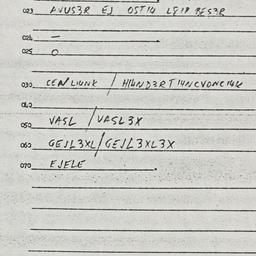 023 AVUS3R EJ OST14 L8IP BES3R
024 —
025 O
030 CEWL14NK / H14ND3RT14NCVONC14K
040
050 VASL / VASL3X
060 GEJL3XL / GEJL3XL3X
070 EJELE